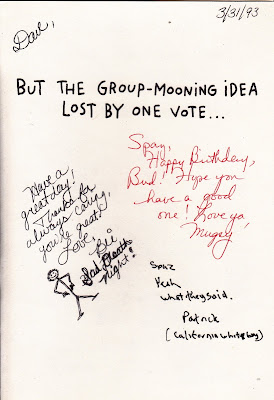 3/31/93
Dave,
BUT THE GROUP-MOONING IDEA
LOST BY ONE VOTE...
Have a
great day!
Thanks for
always caring,
you're great!
Love,
Spaz,
Happy Birthday,
Bud! Hope you
have a good
one! Love ya
Mugsy
Bad Breath
night!
Spaz
Yeah
what they said.
Patrick
(California white boy)